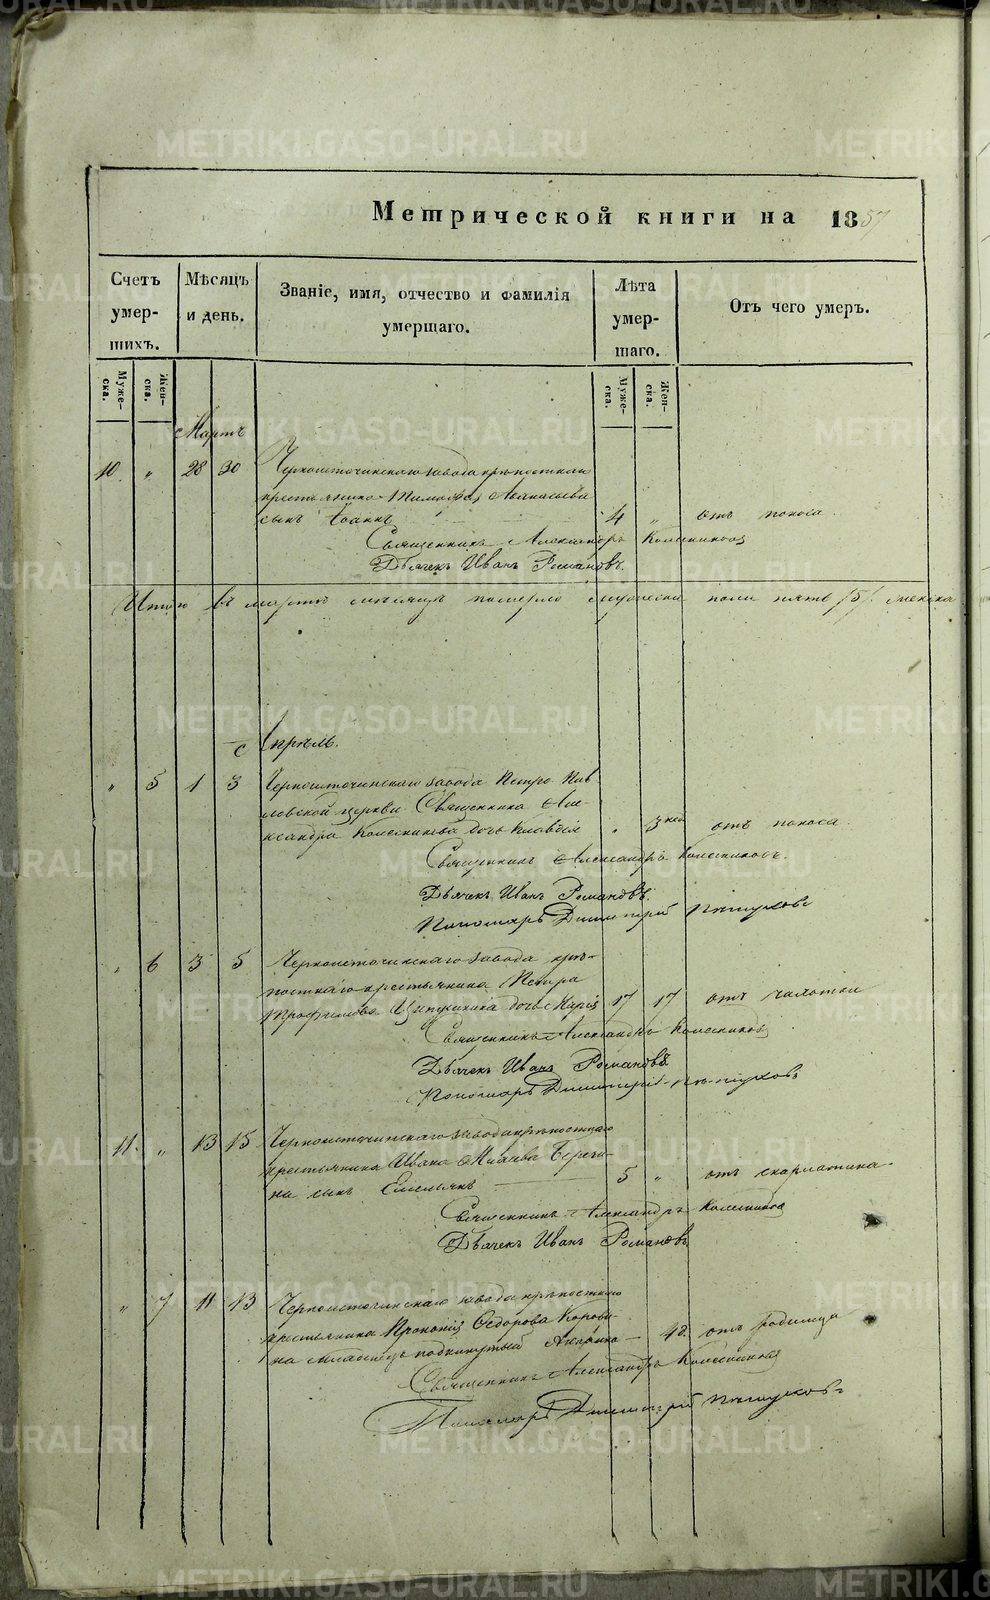 Метрической книги на 1857
Счетъ умер-шихъ.
Мѣсяцъ и день.
Званіе, имя, отчество и фамилія умершаго.
Лѣта умер-шаго.
Отъ чего умеръ.
Муже-ска.
Жен-ска.
Муже-ска.
Жен-ска.
Мартъ
10. " 28 30 Черноисточинскаго завода крѣпостнаго
крестьянина Тимофея Аѳанасьева
сынъ Іоаннъ 4 " отъ поноса.
Священникъ Александръ Колесниковъ
Дьячекъ Иванъ Романовъ.
Итого въ мартѣ мѣсяцѣ померло мужеска пола пять /5/. женска
Апрѣль.
" 5 1 3 Черноисточинскаго завода Петро Пав
ловской церкви Священника Але-
ксандра Колесникова дочь Клавдія " 3 нед отъ поноса.
Священникъ Александръ Колесниковъ.
Дьячекъ Иванъ Романовъ.
Пономарь Димитрій
" 6 3 5 Черноисточинскаго завода крѣ-
постнаго крестьянина Петра
Трофимова дочь Марія 17 17 отъ чахотки
Священникъ Александръ Колесниковъ
Дьячекъ Иванъ Романовъ
Пономарь Димитрій
11. " 13 15 Черноисточинскаго завода крѣпостнаго
крестьянина Ивана
на сынъ Емельянъ 5 " отъ скарлатина.
Священникъ Александръ Колесниковъ
Дьячекъ Иванъ Романовъ
" 7 11 13 Черноисточинскаго завода крѣпостнаго
крестьянина Прокопія Ѳедорова Корови-
на младенецъ подкинутый 4 д. отъ родимца
Священникъ Александръ Колесниковъ
Пономарь Димитрій
METRIKI.GASO-URAL.RU